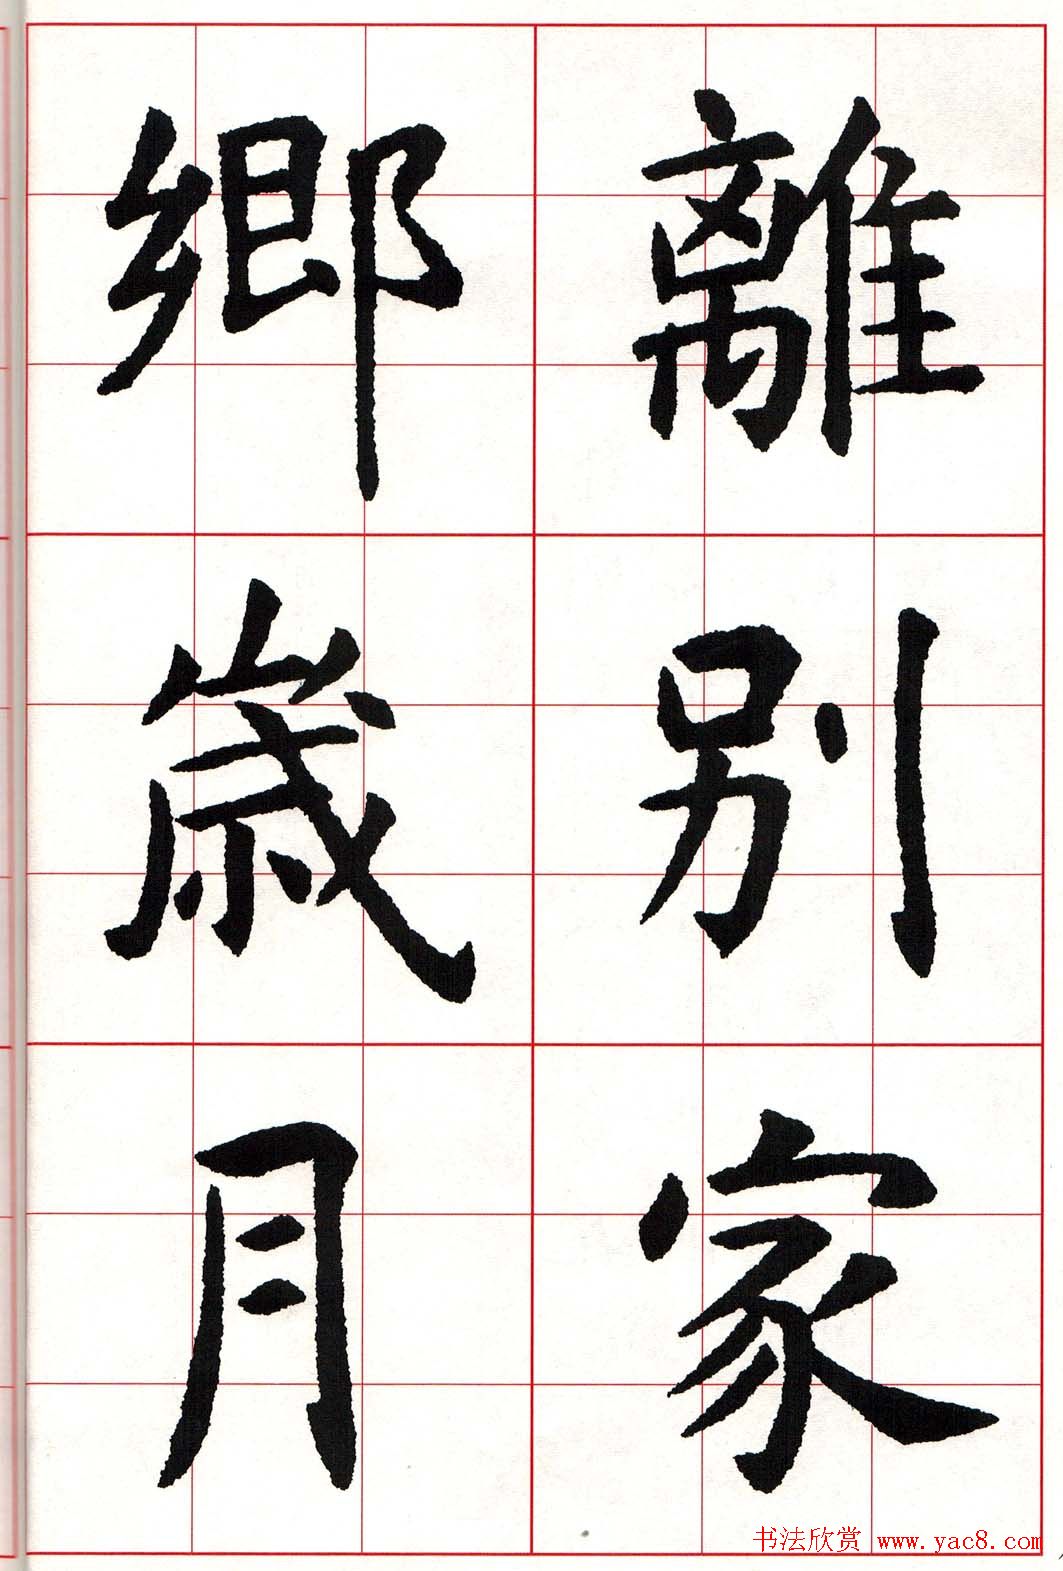 離別家
鄉歳月
书法欣赏 www.yac8.com